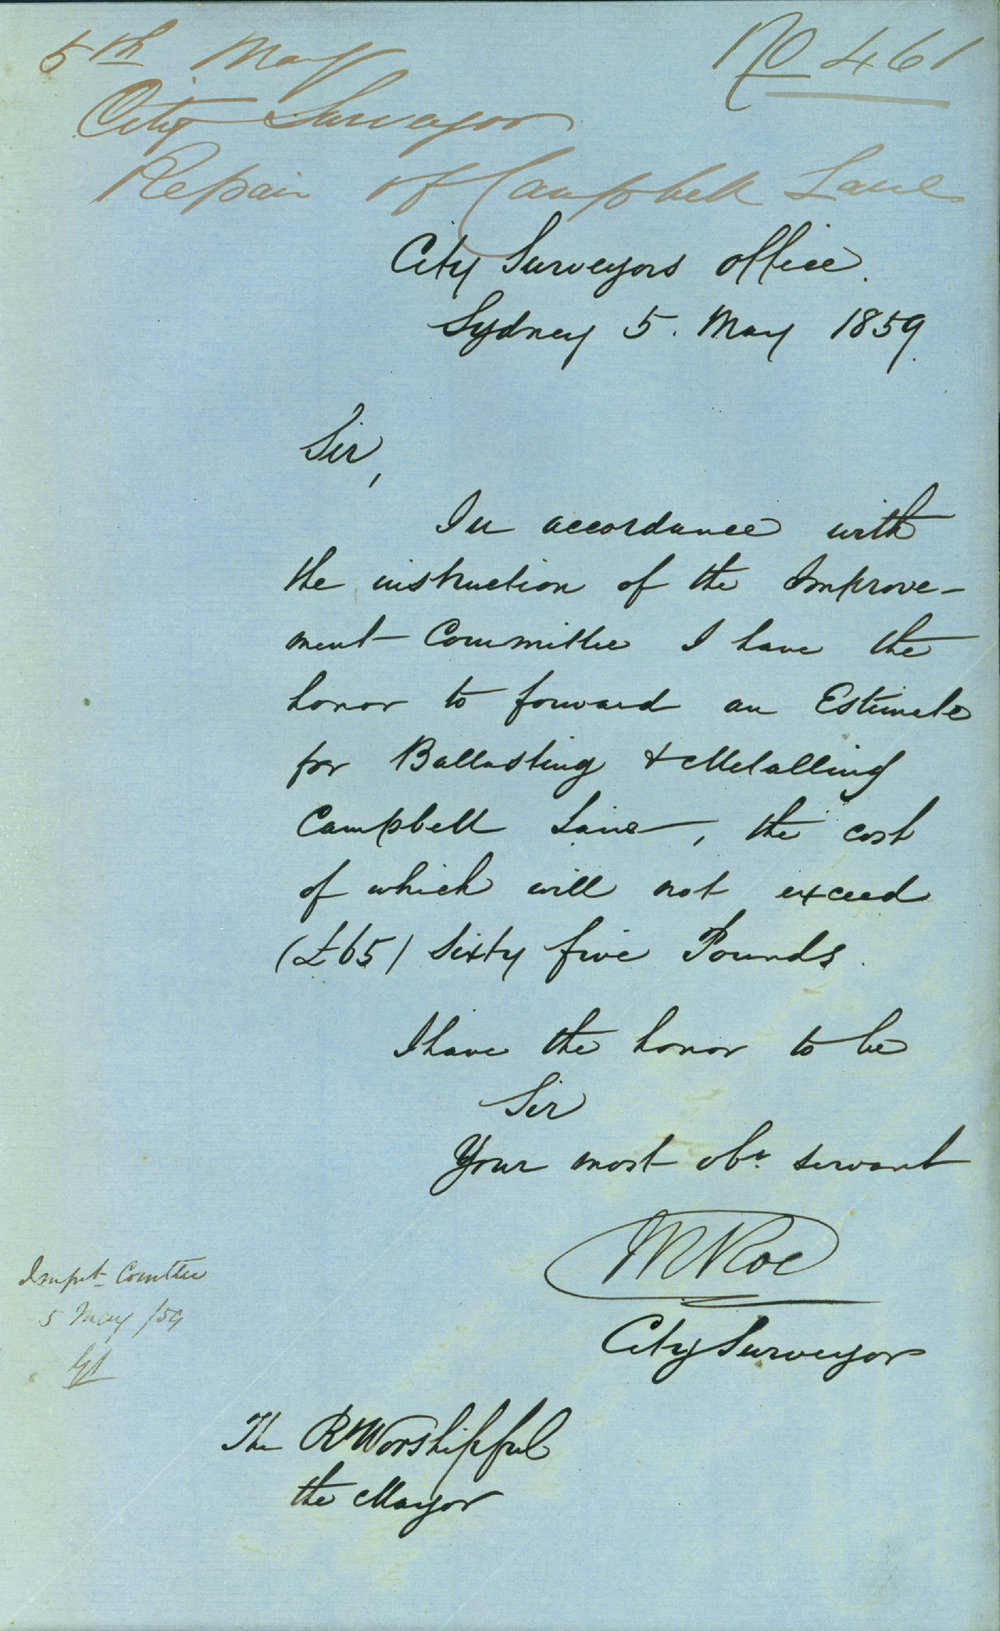 5th May
No 461
City Surveyor
Repair of Campbell Lane
City Surveyors office.
Sydney 5. May 1859.
Sir,
In accordance with
the instruction of the Improve-
ment Committee I have the
honor to forward an Estimate
for Ballasting & Metalling
Campbell Lane, the cost
of which will not exceed
(£65) Sixty five Pounds.
I have the honor to be
Sir
Your most obt servant
W Roe
City Surveyor
Impt Comttee
5 May /59
The Rt Worshipful
the Mayor